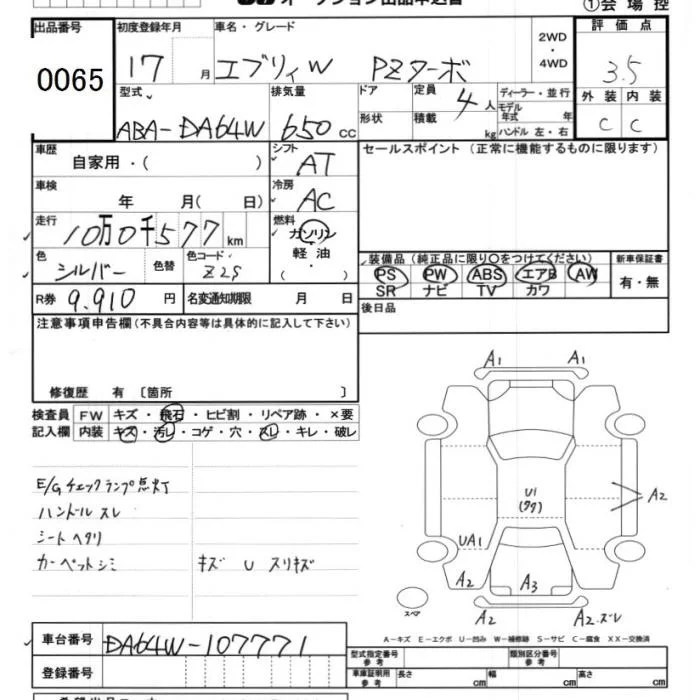 オークション出品申込書 ①会場控
出品番号 初度登録年月 車名・グレード 2WD・4WD 評価点
0065 17月 エブリィW PZターボ 3.5
型式 排気量 ドア 定員 4人 ディーラー・並行 外装 内装
ABA-DA64W 650cc 形状 積載 kg モデル年式 年 ハンドル 左・右 C C
車歴 自家用・( ) シフト AT セールスポイント(正常に機能するものに限ります)
車検 年 月( 日) 冷房 AC
走行 10万0千577km 燃料 ガソリン
色 シルバー 色替 色コード Z2S 軽油 ( ・ )
装備品(純正品に限り○をつけてください) 新車保証書
PS PW ABS エアB AW 有・無
SR ナビ TV カワ
R券 9,910円 名変通知期限 月 日 後日品
注意事項申告欄(不具合内容等は具体的に記入して下さい)
修復歴 有 〔箇所 〕
検査員 FW キズ・飛石・ヒビ割・リペア跡・×要
記入欄 内装 キズ・汚レ・コゲ・穴・スレ・キレ・破レ
E/Gチェックランプ点灯
ハンドルスレ
シートヘタリ
カーペットシミ キズ U スリキズ
A1 A1
U1
(タタ)
A2
UA1
A2 A3
スペア
A2 A2.ズレ
A-キズ E-エクボ U-凹み W-補修跡 S-サビ C-腐食 XX-交換済
車台番号 DA64W-107771
型式指定番号 参考 類別区分番号 参考
登録番号 車庫証明用 参考 長さ cm 幅 cm 高さ cm